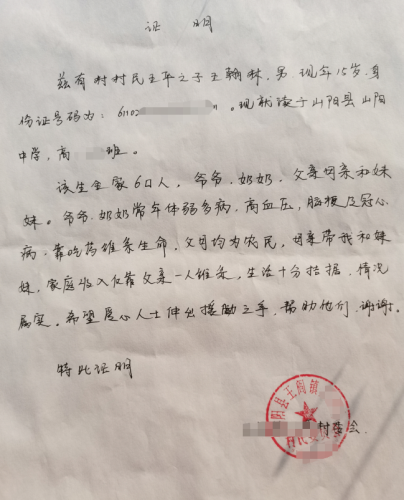 证 明
兹有村村民王平之子王翰林,男 现年15岁.身
份证号码为: 61102 。现就读于山阳县山阳
中学,高 班。
该生全家6口人,爷爷.奶奶.父亲母亲和妹
妹。爷爷.奶奶常年体弱多病.高血压,脑梗及冠心
病.靠吃药维系生命.父母均为农民,母亲带我和妹
妹,家庭收入仅靠父亲一人维系,生活十分拮据.情况
属实。希望爱心人士伸出援助之手,帮助他们.谢谢。
特此证明
阳县王阎镇
村民委
村委会.